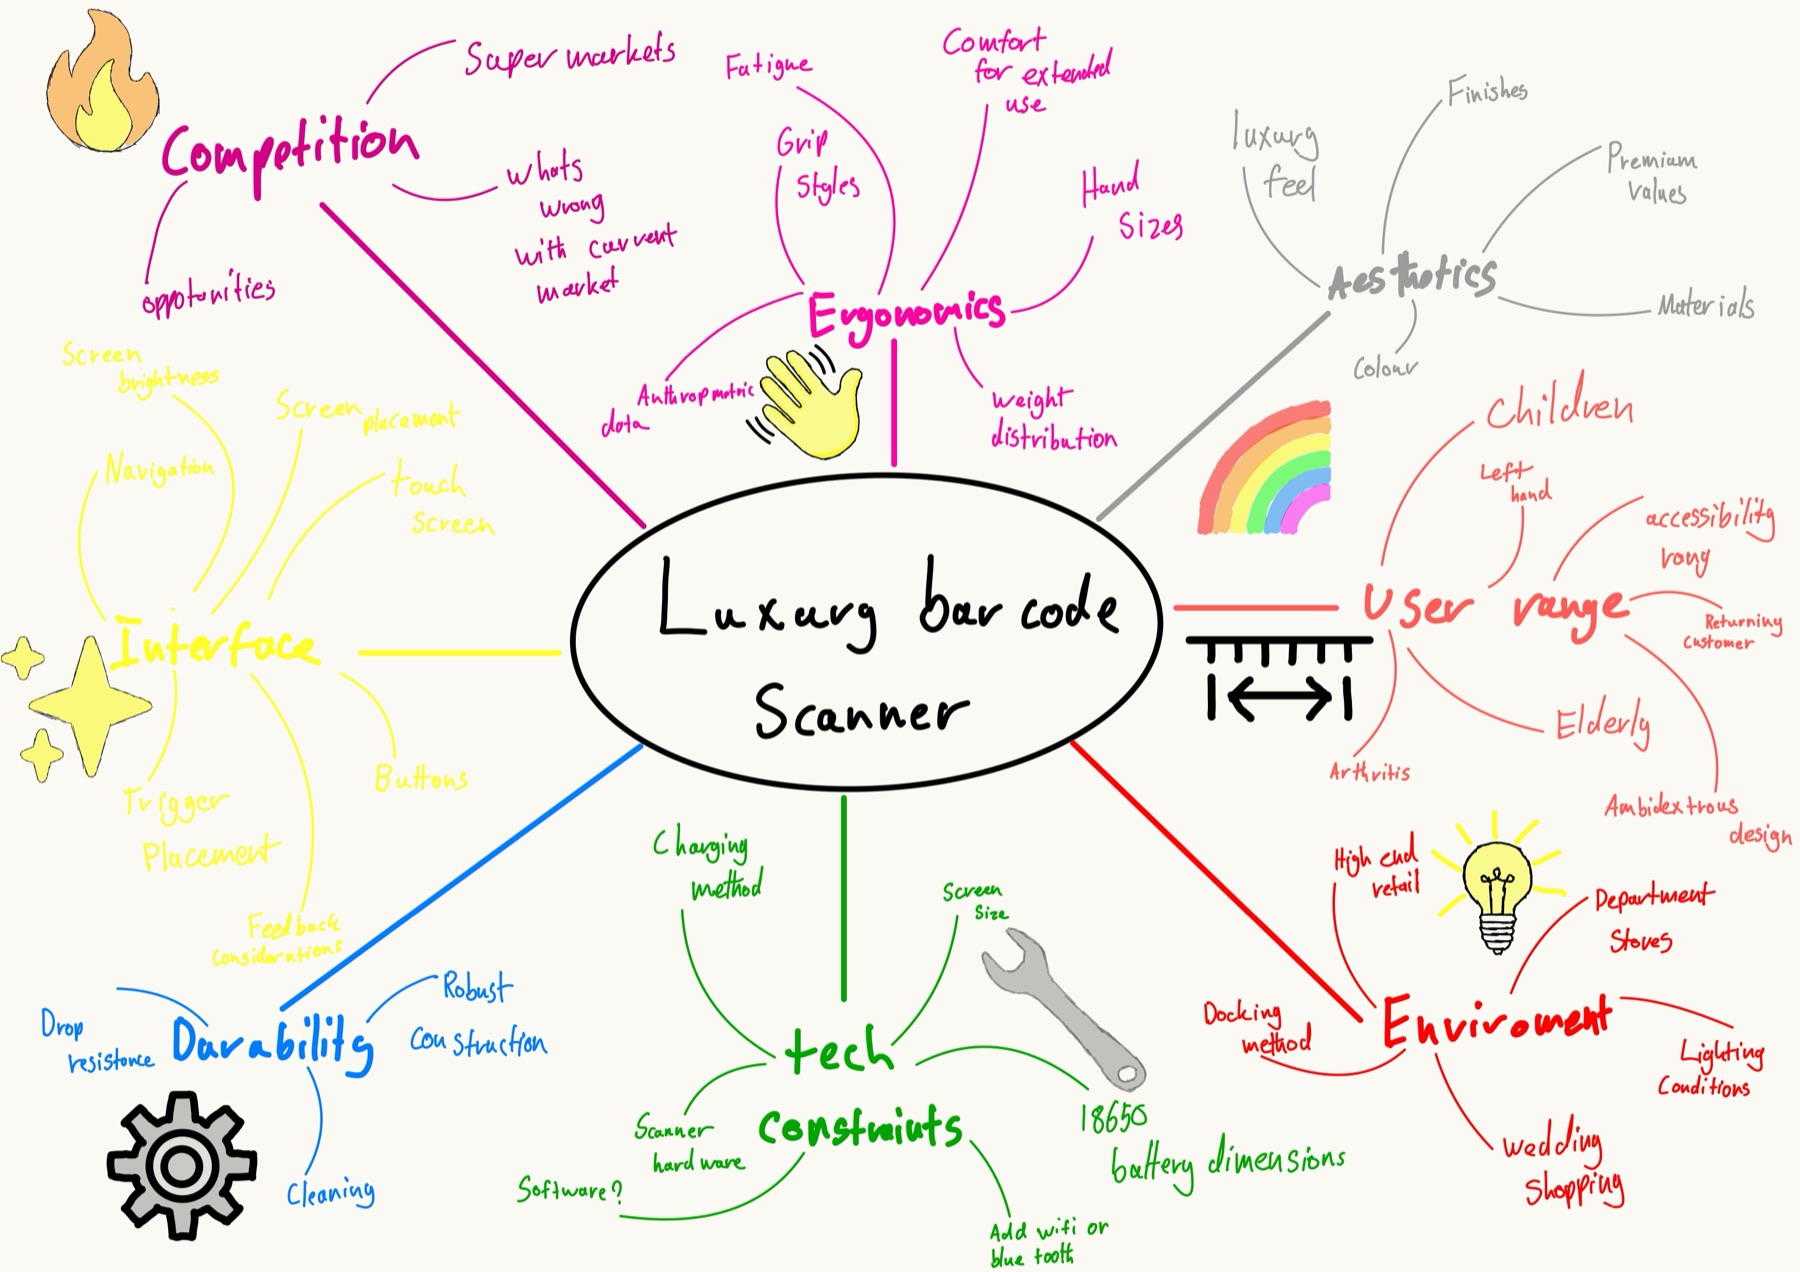 Super markets
Competition
whats
wrong
with current
market
oppotunities
Fatigue
Comfort
for extended
use
Grip
Styles
Hand
Sizes
Ergonomics
Anthropmetric
data
weight
distribution
Finishes
luxury
feel
Premium
values
Aesthetics
Materials
Colour
Screen
brightness
Screen
placement
Navigation
touch
screen
Interface
Trigger
Placement
Buttons
Feedback
considerations
Luxury bar code
Scanner
Children
Left
hand
accessibility
rang
User range
Returning
customer
Elderly
Arthritis
Ambidextrous
design
Drop
resistence
Durability
Robust
construction
Cleaning
Charging
method
Screen
Size
tech
constraints
Scanner
hardware
Software?
18650
battery dimensions
Add wifi or
blue tooth
High end
retail
Department
Stores
Docking
method
Enviroment
Lighting
Conditions
wedding
Shopping